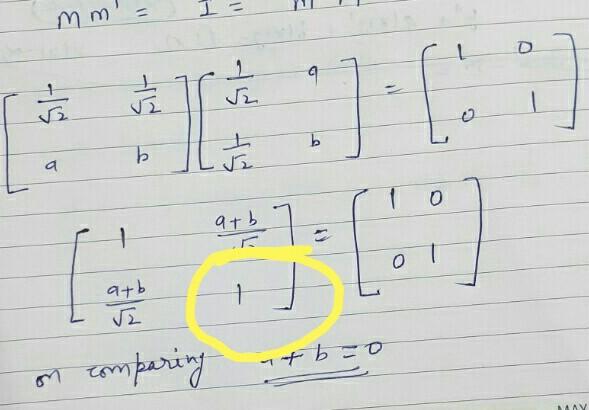 M M' = I =
[1/√2 1/√2; a b] [1/√2 a; 1/√2 b] = [1 0; 0 1]
[1 (a+b)/√2; (a+b)/√2 1] = [1 0; 0 1]
on comparing a+b=0